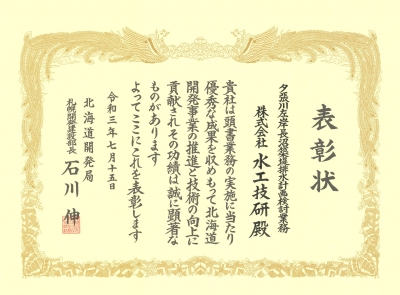 表彰状
夕張川左岸長沼築堤排水計画検討業務
株式会社 水工技研 殿
貴社は頭書業務の実施に当たり
優秀な成果を収めもって北海道
開発事業の推進と技術の向上に
貢献されその功績は誠に顕著な
ものがあります
よってここにこれを表彰します
令和三年七月十五日
北海道開発局
札幌開発建設部長 石川 伸